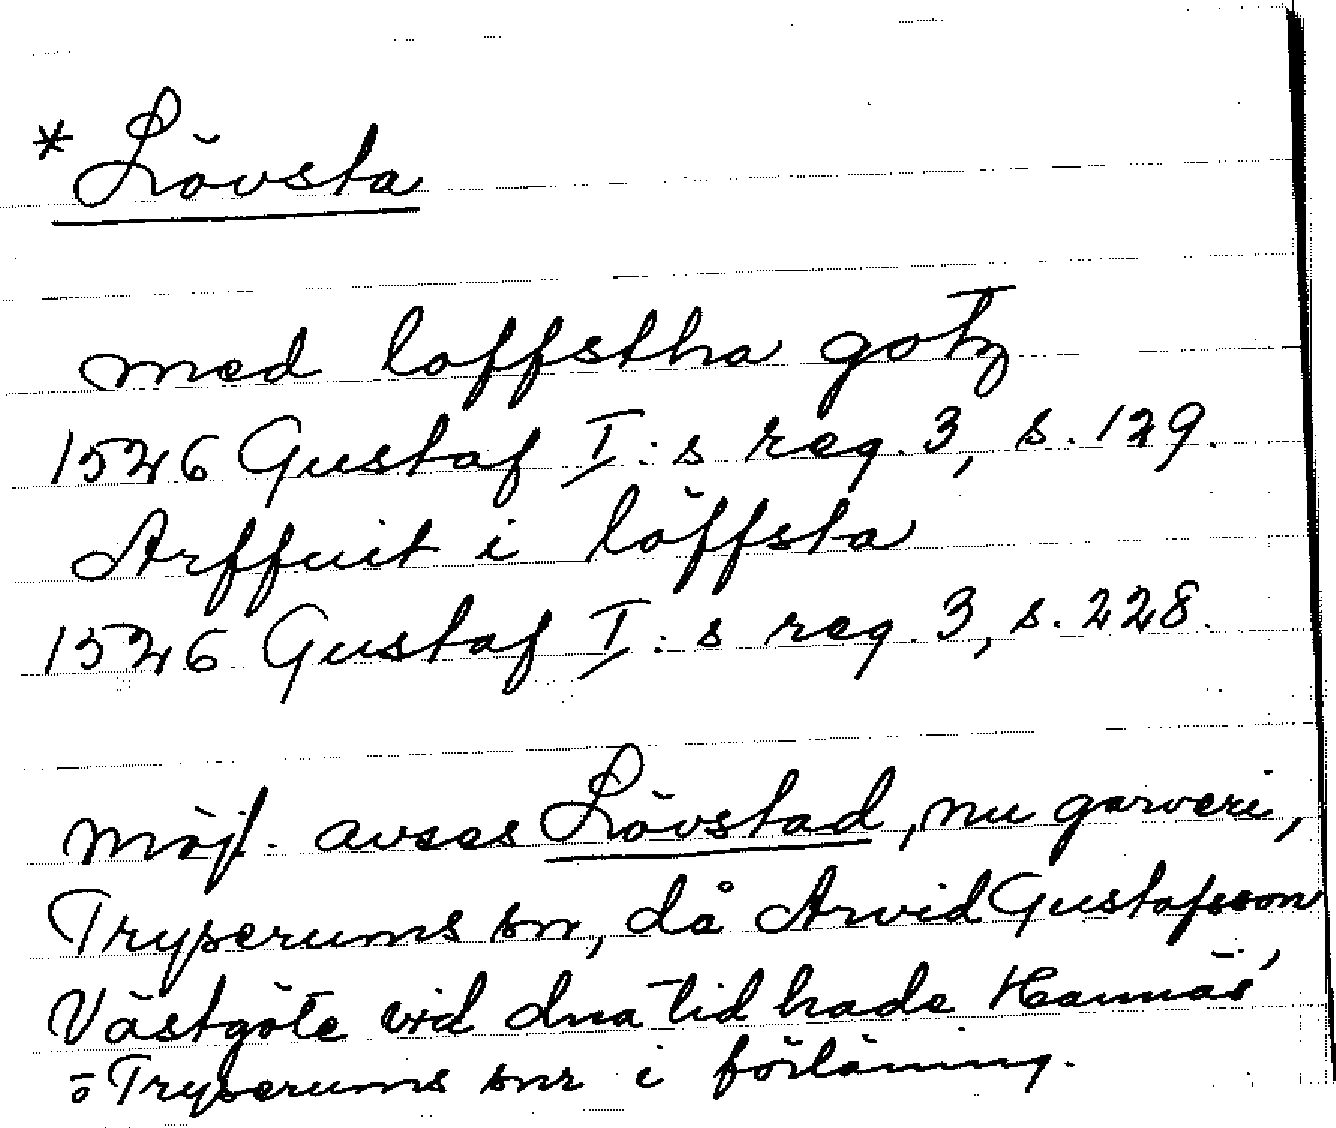 * Lövsta
med loffstha gotz
1526 Gustaf I:s reg. 3, s. 129.
Arffuit i löffsta
1526 Gustaf I:s reg. 3, s. 228.
Möjl. avses Lövstad, nu garveri,
Tryserums sn, då Arvid Gustafsson
Västgöte vid dna tid hade Hannäs
o Tryserums snr i förläning.